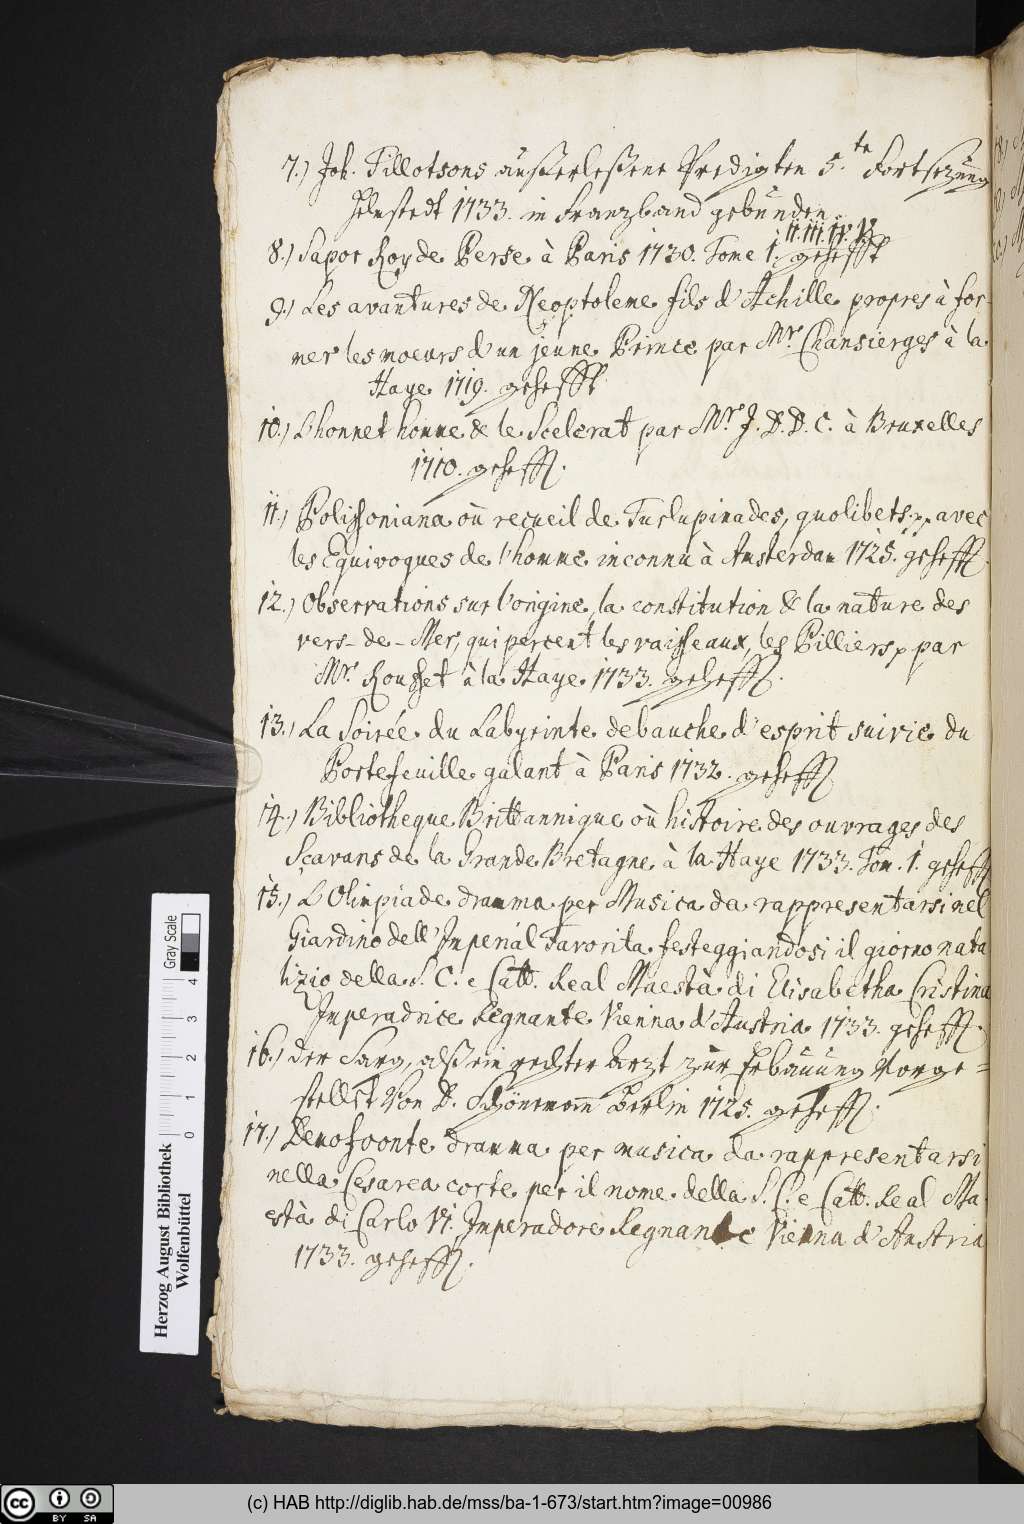 7.) Joh. Tillotsons außerleßene Predigten 5.te Fortsezung
Helmstedt 1733. in Franzband gebunden.
8.) Sapor Roy de Perse à Paris 1730. Tome i. ii. iii. iv. V. gehefft
9.) Les avantures de Neoptoleme fils d'Achille propres à for-
mer les moeurs d'un jeune Prince par Mr. Chansierges à la
Haye 1719. gehefft
10.) L'honnet homme & le Scelerat par Mr. J. D. D. C. à Bruxelles
1710. gehefft.
11.) Polissoniana où recueil de Turlupinades, quolibets pp avec
les Equivoques de l'homme inconnu à Amsterdam 1725. gehefft.
12.) Observations sur l'origine, la constitution & la nature des
vers-de-Mer, qui percent les vaisseaux, les Pilliers p par
Mr. Rousset à la Haye 1733. gehefft.
13.) La Soirée du Labyrinte debauche d'esprit suivie du
Portefeuille galant à Paris 1732. gehefft
14.) Bibliotheque Brittannique où histoire des ouvrages des
Sçavans de la Grande Bretagne à la Haye 1733. Tom. 1. gehefft
15.) L'Olimpiade dramma per Musica da rappresentarsi nel
Giardino dell'Imperial Favorita festeggiandosi il giorno nata
lizio della S. C. e Catt. Real Maestà di Elisabetha Cristina
Imperadrice Regnante Vienna d'Austria 1733. gehefft.
16.) Der Sarg, alß ein rechter Arzt zur Erbauung Vorge=
stellet Von D. Schönemann Berlin 1725. gehefft.
17.) Demofoonte dramma per musica da rappresentarsi
nella Cesarea corte per il nome della S. C. e Catt. Real Ma
està di Carlo Vi. Imperadore Regnante Vienna d'Austria
1733. gehefft.
Herzog August Bibliothek
Wolfenbüttel
0 1 2 3 4
Gray Scale
cc BY SA
(c) HAB http://diglib.hab.de/mss/ba-1-673/start.htm?image=00986